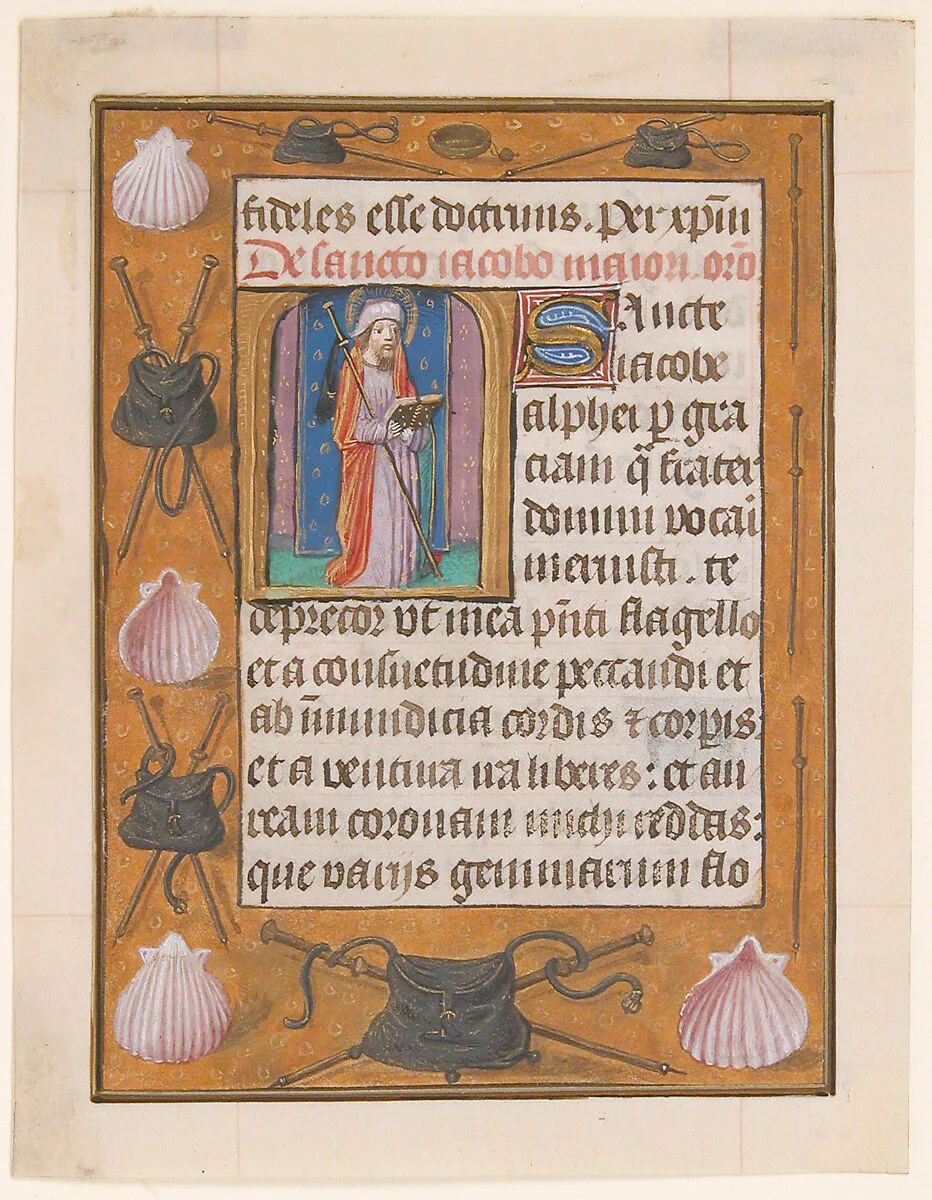 fideles esse doctrinis. Per xp̄m
De sancto iacobo maiori. or̄o
Sancte
iacobe
alphei ꝑ gra
ciam q̄ frater
domini vocai
meruisti. te
deprecor vt mea p̄nti flagello
et a consuetudine peccandi et
ab īmundicia cordis ⁊ corꝑis
et a ventura ira liberes: et au
ream coronam michi reddas:
que varijs gemmarum flo